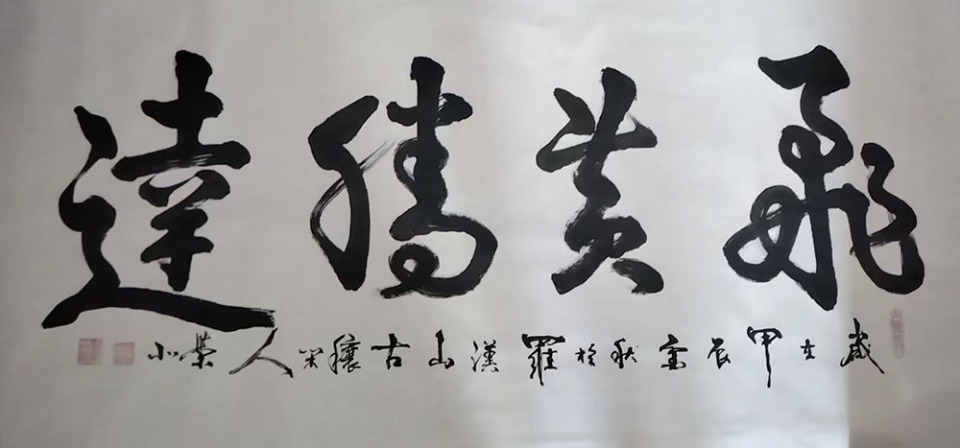 飛黃騰達
歲在甲辰金秋於羅漢山古穰人榮